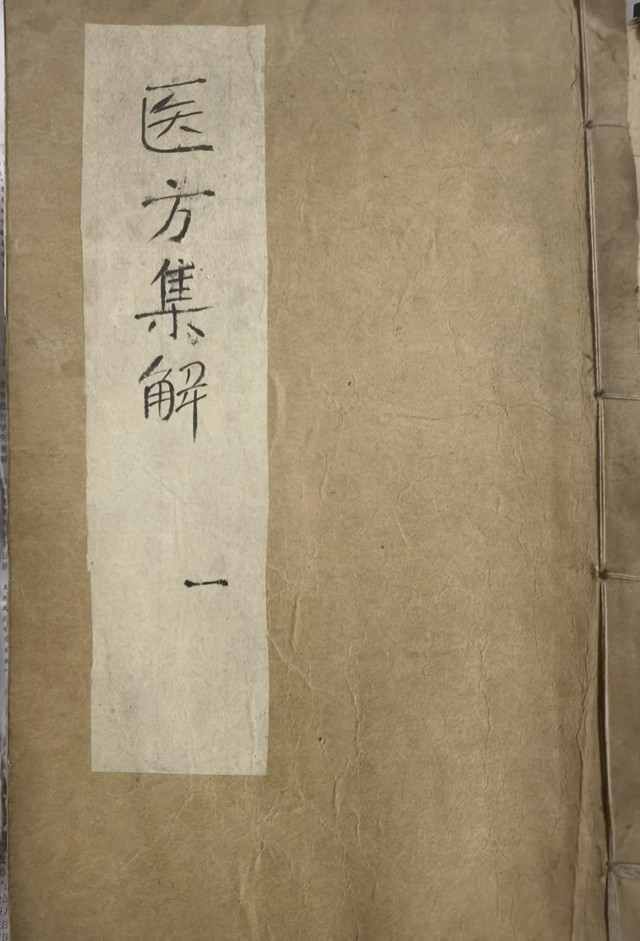 医方集解
一